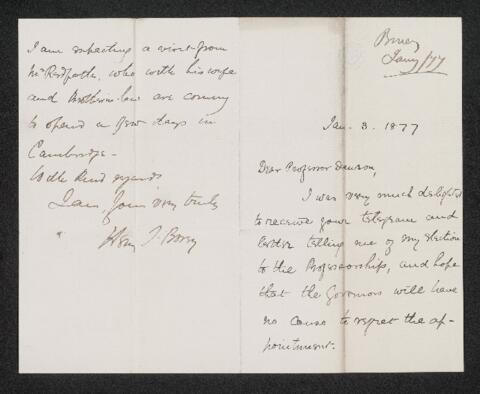 Bovey
Jany /77
Jan. 3. 1877
Dear Professor Dawson,
I was very much delighted
to receive your telegram and
letter telling me of my election
to the Professorship, and hope
that the Governors will have
no cause to regret the ap-
pointment.
I am expecting a visit from
Mr Redpath, who with his wife
and brother in law are coming
to spend a few days in
Cambridge.
With kind regards
I am, yours very truly
Henry T. Bovey